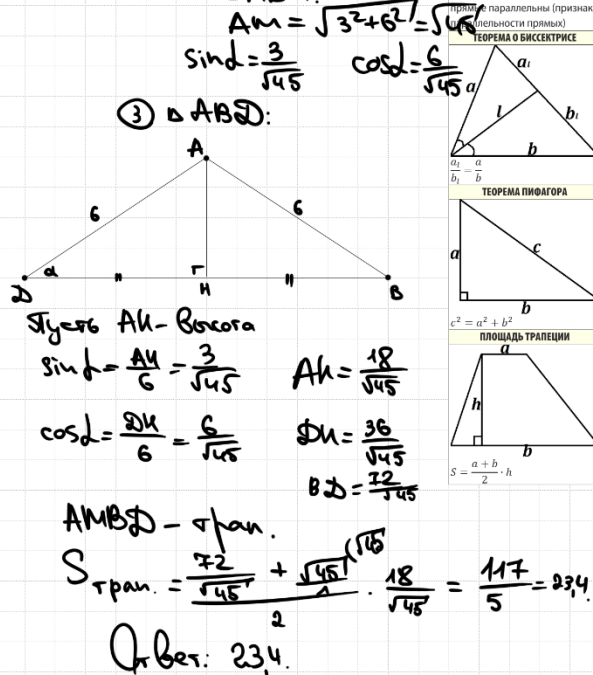 AM = √(3²+6²) = √45
sinα = 3/√45 cosα = 6/√45
③ △ ABD:
A
6 6
α
D H B
Пусть AH - высота
sinα = AH/6 = 3/√45 AH = 18/√45
cosα = DH/6 = 6/√45 DH = 36/√45
BD = 72/√45
AMBD - трап.
S трап. = (72/√45 + √45/1 (√45)/2 · 18/√45 = 117/5 = 23,4.
Ответ: 23,4.
прямые параллельны (признак
параллельности прямых)
ТЕОРЕМА О БИССЕКТРИСЕ
a a₁
l b₁
b
a₁/b₁ = a/b
ТЕОРЕМА ПИФАГОРА
a c
b
c² = a² + b²
ПЛОЩАДЬ ТРАПЕЦИИ
a
h
b
S = (a + b)/2 · h